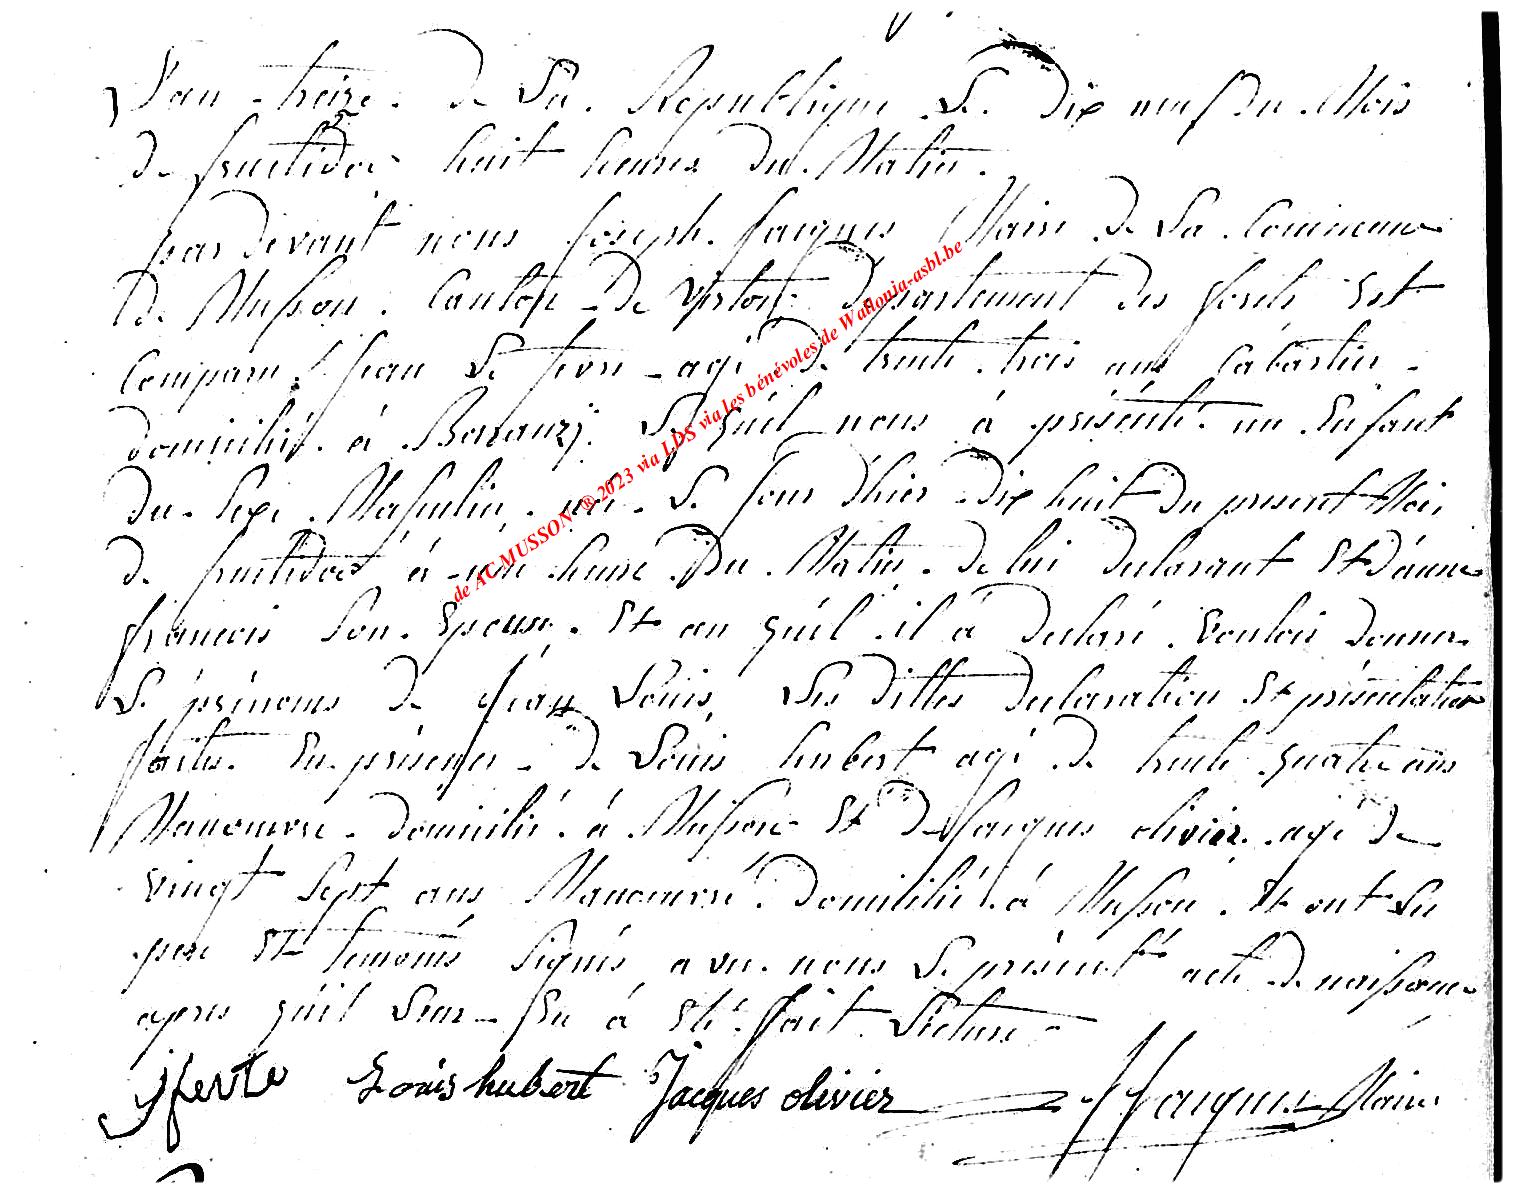 L'an treize de La Republique Le dix neuf du Mois
de fructidor huit heures du Matin.
pardevant nous Joseph Jacques Maire de La Commune
de Musson Canton de Virton département des forets Est
Comparu Jean Le agé de trente trois ans Cabartier
domicilié à Baranzÿ Le quél nous à présenté un Enfant
du Sexe Masculin né Le Jour d'hier dix huit du present Mois
de fructidor à une heure Du Matin de lui declarant Et d'anne
francois Son Epouse Et au quél il à declaré Vouloir donner
Le prénoms de Jean Louis Les dittes declaration Et présentation
faites En présence de Louis hubert agé de trente quatre ans
Manouvre domicilié à Musson Et de Jacques olivier agé de
Vingt Sept ans Manouvré domicilié à Musson Et ont Les
pere Et temoins Signés avec nous Le présent acte de naissance
apres quil Leur En à Eté fait Lecture
Louis hubert Jacques olivier JJacques Maire
de ACMUSSON ® 2023 via LDS via les bénévoles de Wallonia-asbl.be